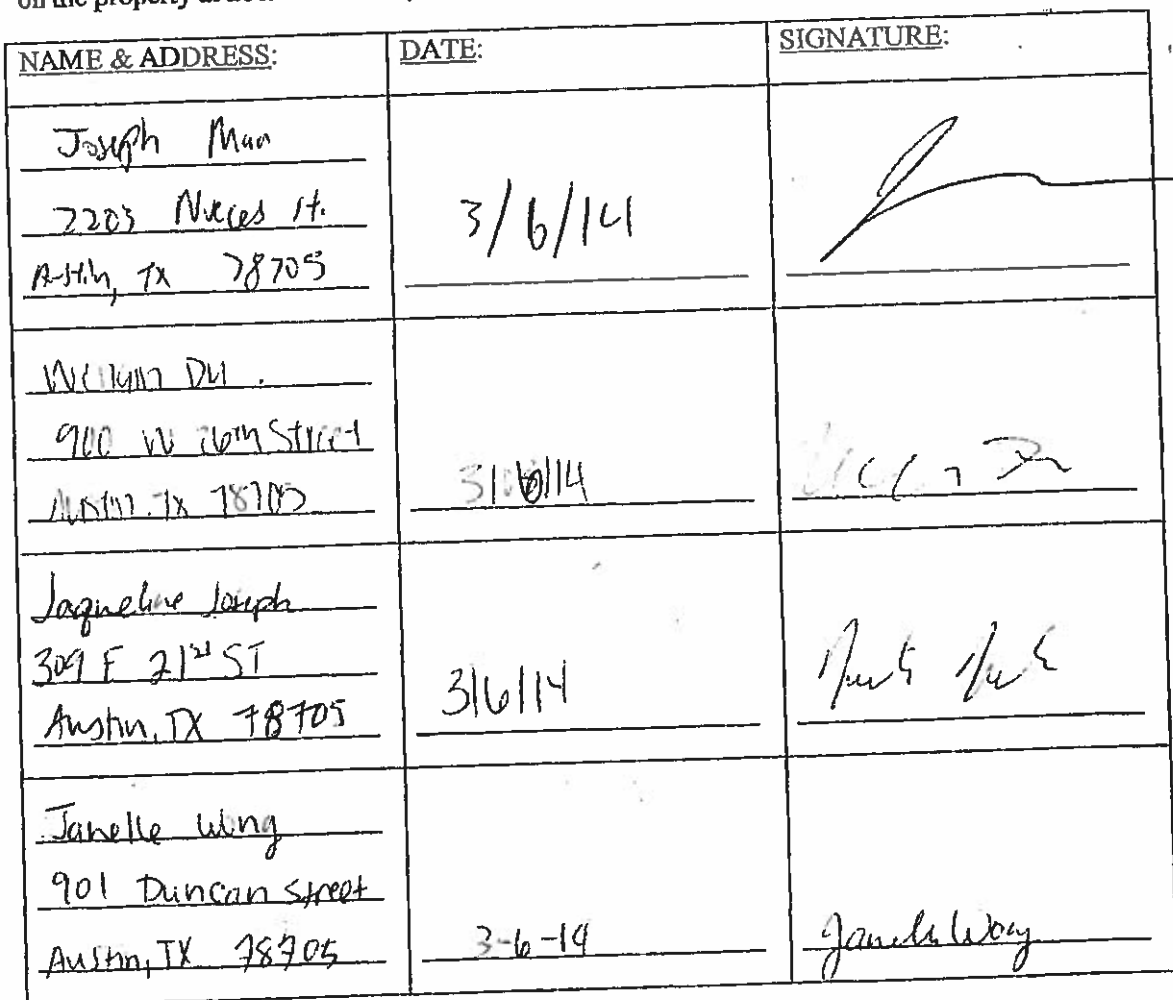 on the property
NAME & ADDRESS: DATE: SIGNATURE:
Joseph
2203 Nueces St.
Austin, TX 78705
3/6/14
Du
900 W 26th Street
Austin, TX 78705
3/6/14
Jaqueline Joseph
309 E 21st ST
Austin, TX 78705
3/6/14
Janelle Wong
901 Duncan Street
Austin, TX 78705
3-6-14
Janelle Wong